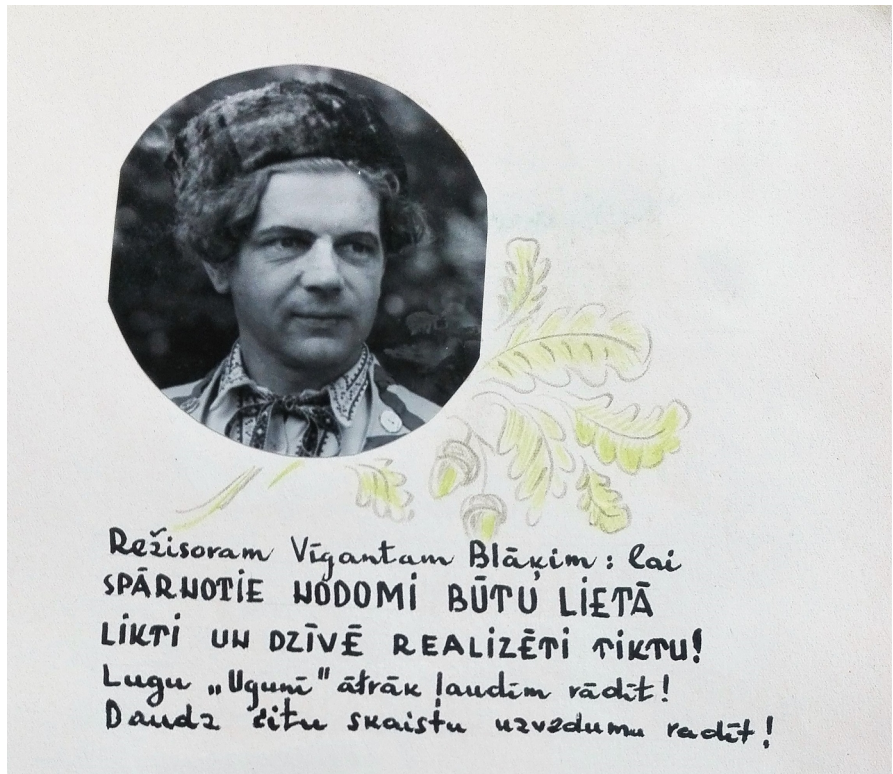 Režisoram Vīgantam Blāķim: lai
SPĀRNOTIE NODOMI BŪTU LIETĀ
LIKTI UN DZĪVĒ REALIZĒTI TIKTU!
Lugu „Ugunī" ātrāk ļaudīm rādīt!
Daudz citu skaistu uzvedumu radīt!